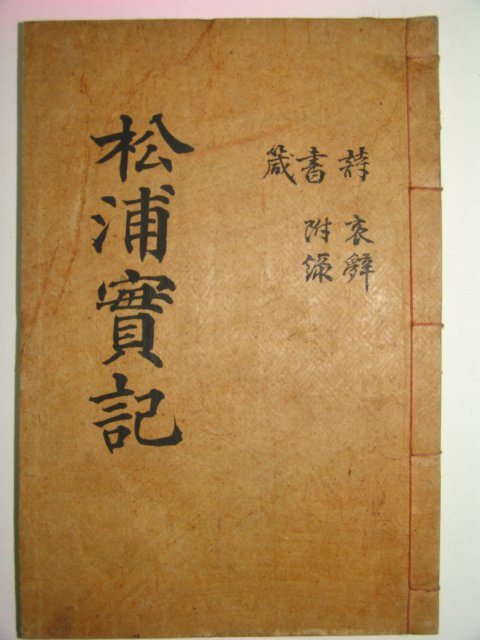 松浦實記
詩 哀辭
書 附錄
箴